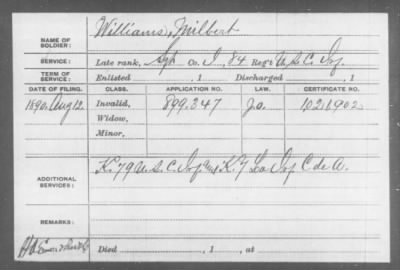 NAME OF SOLDIER: Williams, Milbert
SERVICE: Late rank, Sgt Co. I, 84 Reg't U.S.C. Inf.
TERM OF SERVICE: Enlisted , 1 Discharged , 1
DATE OF FILING. CLASS. APPLICATION NO. LAW. CERTIFICATE NO.
1890, Aug 12. Invalid, 899.247 Jo. 1021902
Widow,
Minor,
ADDITIONAL SERVICES: K. 79 U.S.C. Inf and K. 7 La Inf C de A.
REMARKS:
Died , 1 , at